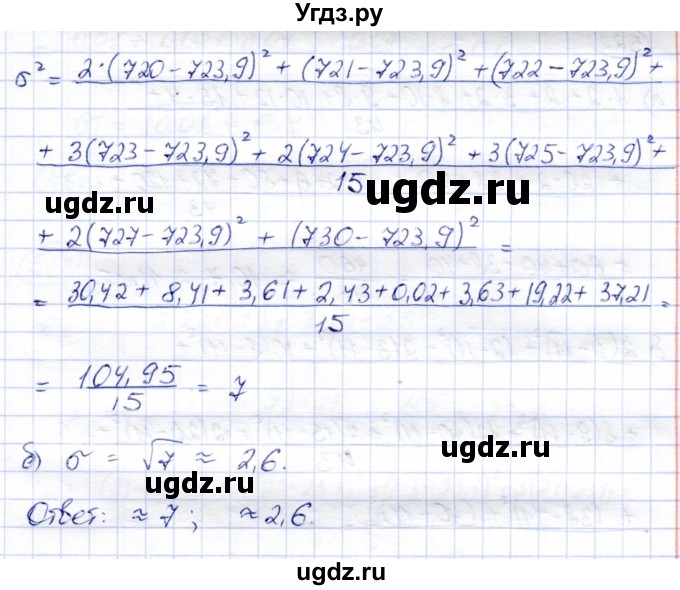 Угдз.ру
σ² = 2·(720 − 723,9)² + (721 − 723,9)² + (722 − 723,9)² +
+ 3(723 − 723,9)² + 2(724 − 723,9)² + 3(725 − 723,9)² +
15
ugdz.ru
ugdz.ru
+ 2(727 − 723,9)² + (730 − 723,9)² =
= 30,42 + 8,41 + 3,61 + 2,43 + 0,02 + 3,63 + 19,22 + 37,21 =
15
ugdz.ru
ugdz.ru
= 104,95 = 7
15
б) σ = √7 ≈ 2,6.
ugdz.ru
ugdz.ru
Ответ: ≈ 7; ≈ 2,6.
ugdz.ru